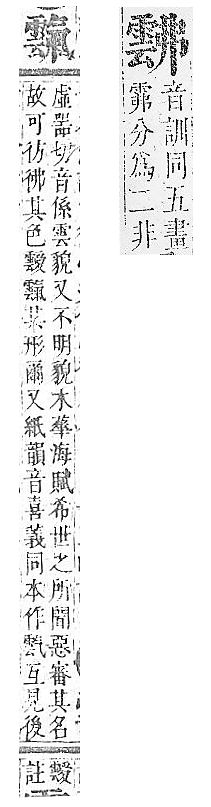 音訓同五畫
分爲二非
虛器切音係雲貌又不明貌木華海賦希世之所聞惡審其名
故可彷彿其色靉其形爾又紙韻音喜義同本作互見後
靉
註